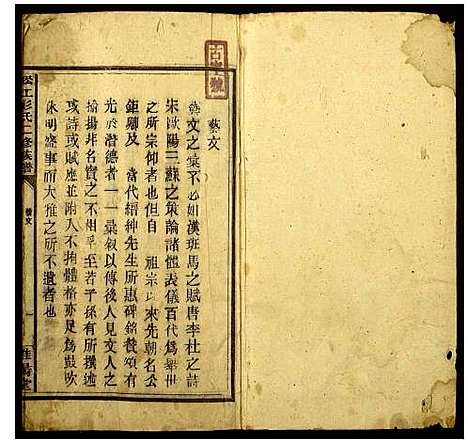 藝文
藝文之彙不必如漢班馬之賦唐李杜之詩
宋歐陽三蘇之策論諸體表儀百代爲舉世
之所宗仰者也但自 祖宗以來先朝名公
鉅卿及 當代縉紳先生所惠碑銘贊頌有
光於潛德者一一彙叙以傳後人見文人之
揄揚非名實之不相乎至若子孫有所撰述
或詩或賦應並附入不拘體格亦足爲鼓吹
休明盛事而大雅之所不遺者也
江彭氏二修族譜
藝文
一